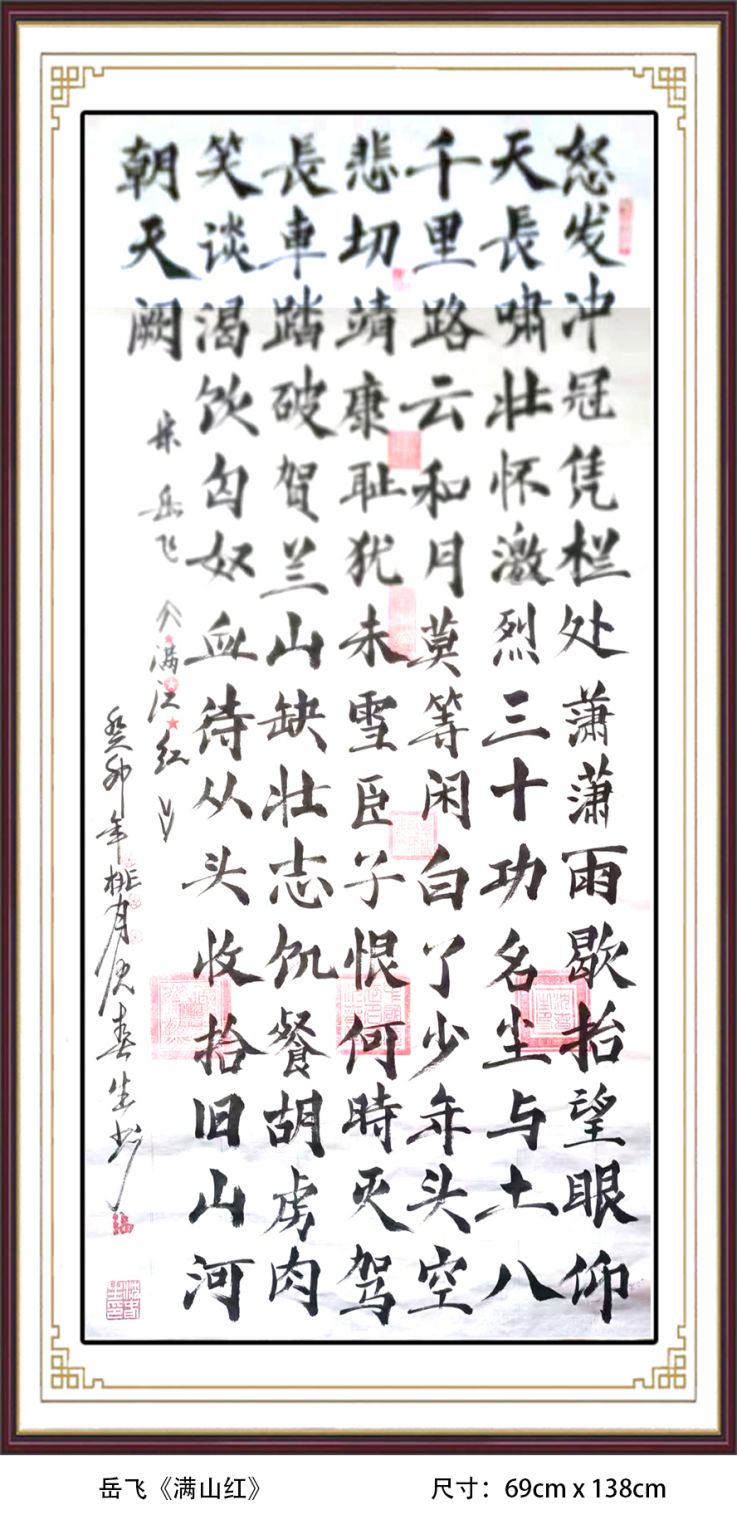 怒发冲冠凭栏处潇潇雨歇抬望眼仰
天長啸壮怀激烈三十功名尘与土八
千里路云和月莫等闲白了少年头空
悲切靖康耻犹未雪臣子恨何時灭驾
長車踏破贺兰山缺壮志饥餐胡虏肉
笑谈渴饮匈奴血待从头收拾旧山河
朝天阙
宋岳飞《满江红》
癸卯年桃月沈春生书
岳飞《满山红》
尺寸：69cm x 138cm